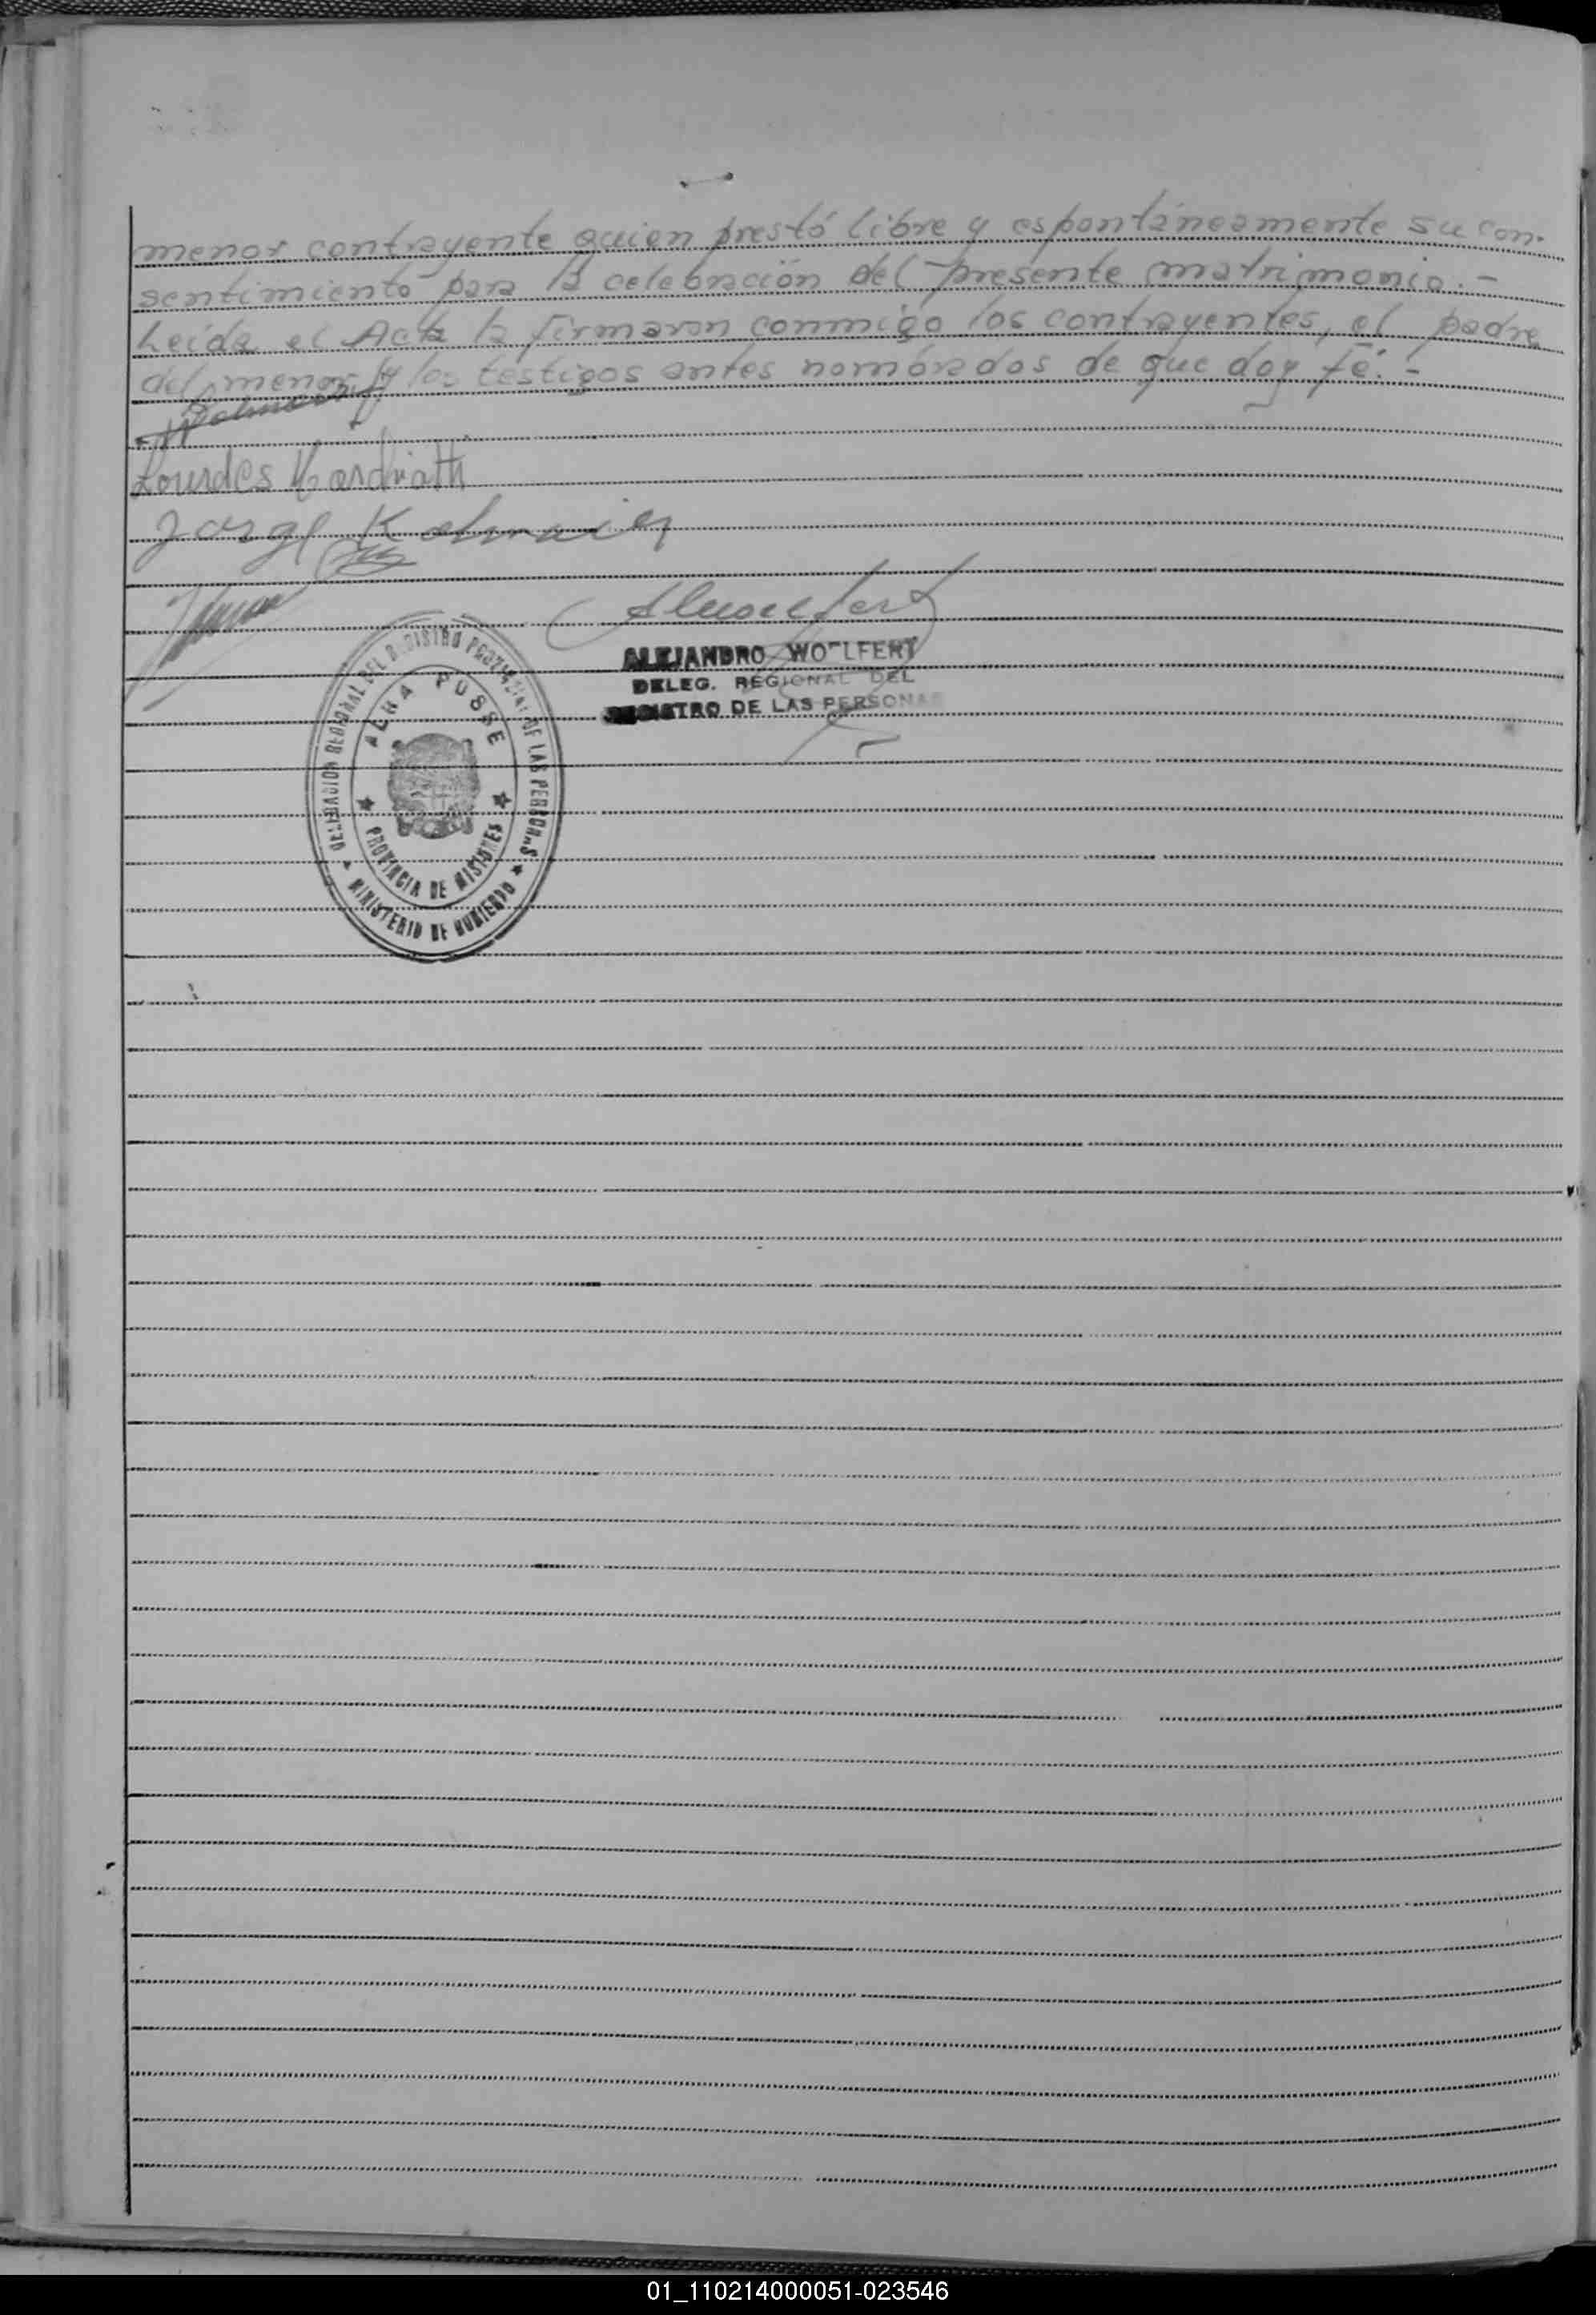 menor contrayente quien prestó libre y espontáneamente su con-
sentimiento para la celebración del presente matrimonio. -
Leída el Acta la firmaron conmigo los contrayentes, el padre
del menor y los testigos antes nombrados de que doy fé. -
Lourdes
Jorge
ALEJANDRO WOLFERT
DELEG. REGIONAL DEL
REGISTRO DE LAS PERSONAS
DELEGACION REGIONAL DEL REGISTRO PROVINCIAL DE LAS PERSONAS
ALBA POSSE
PROVINCIA DE MISIONES
MINISTERIO DE GOBIERNO
01_110214000051-023546